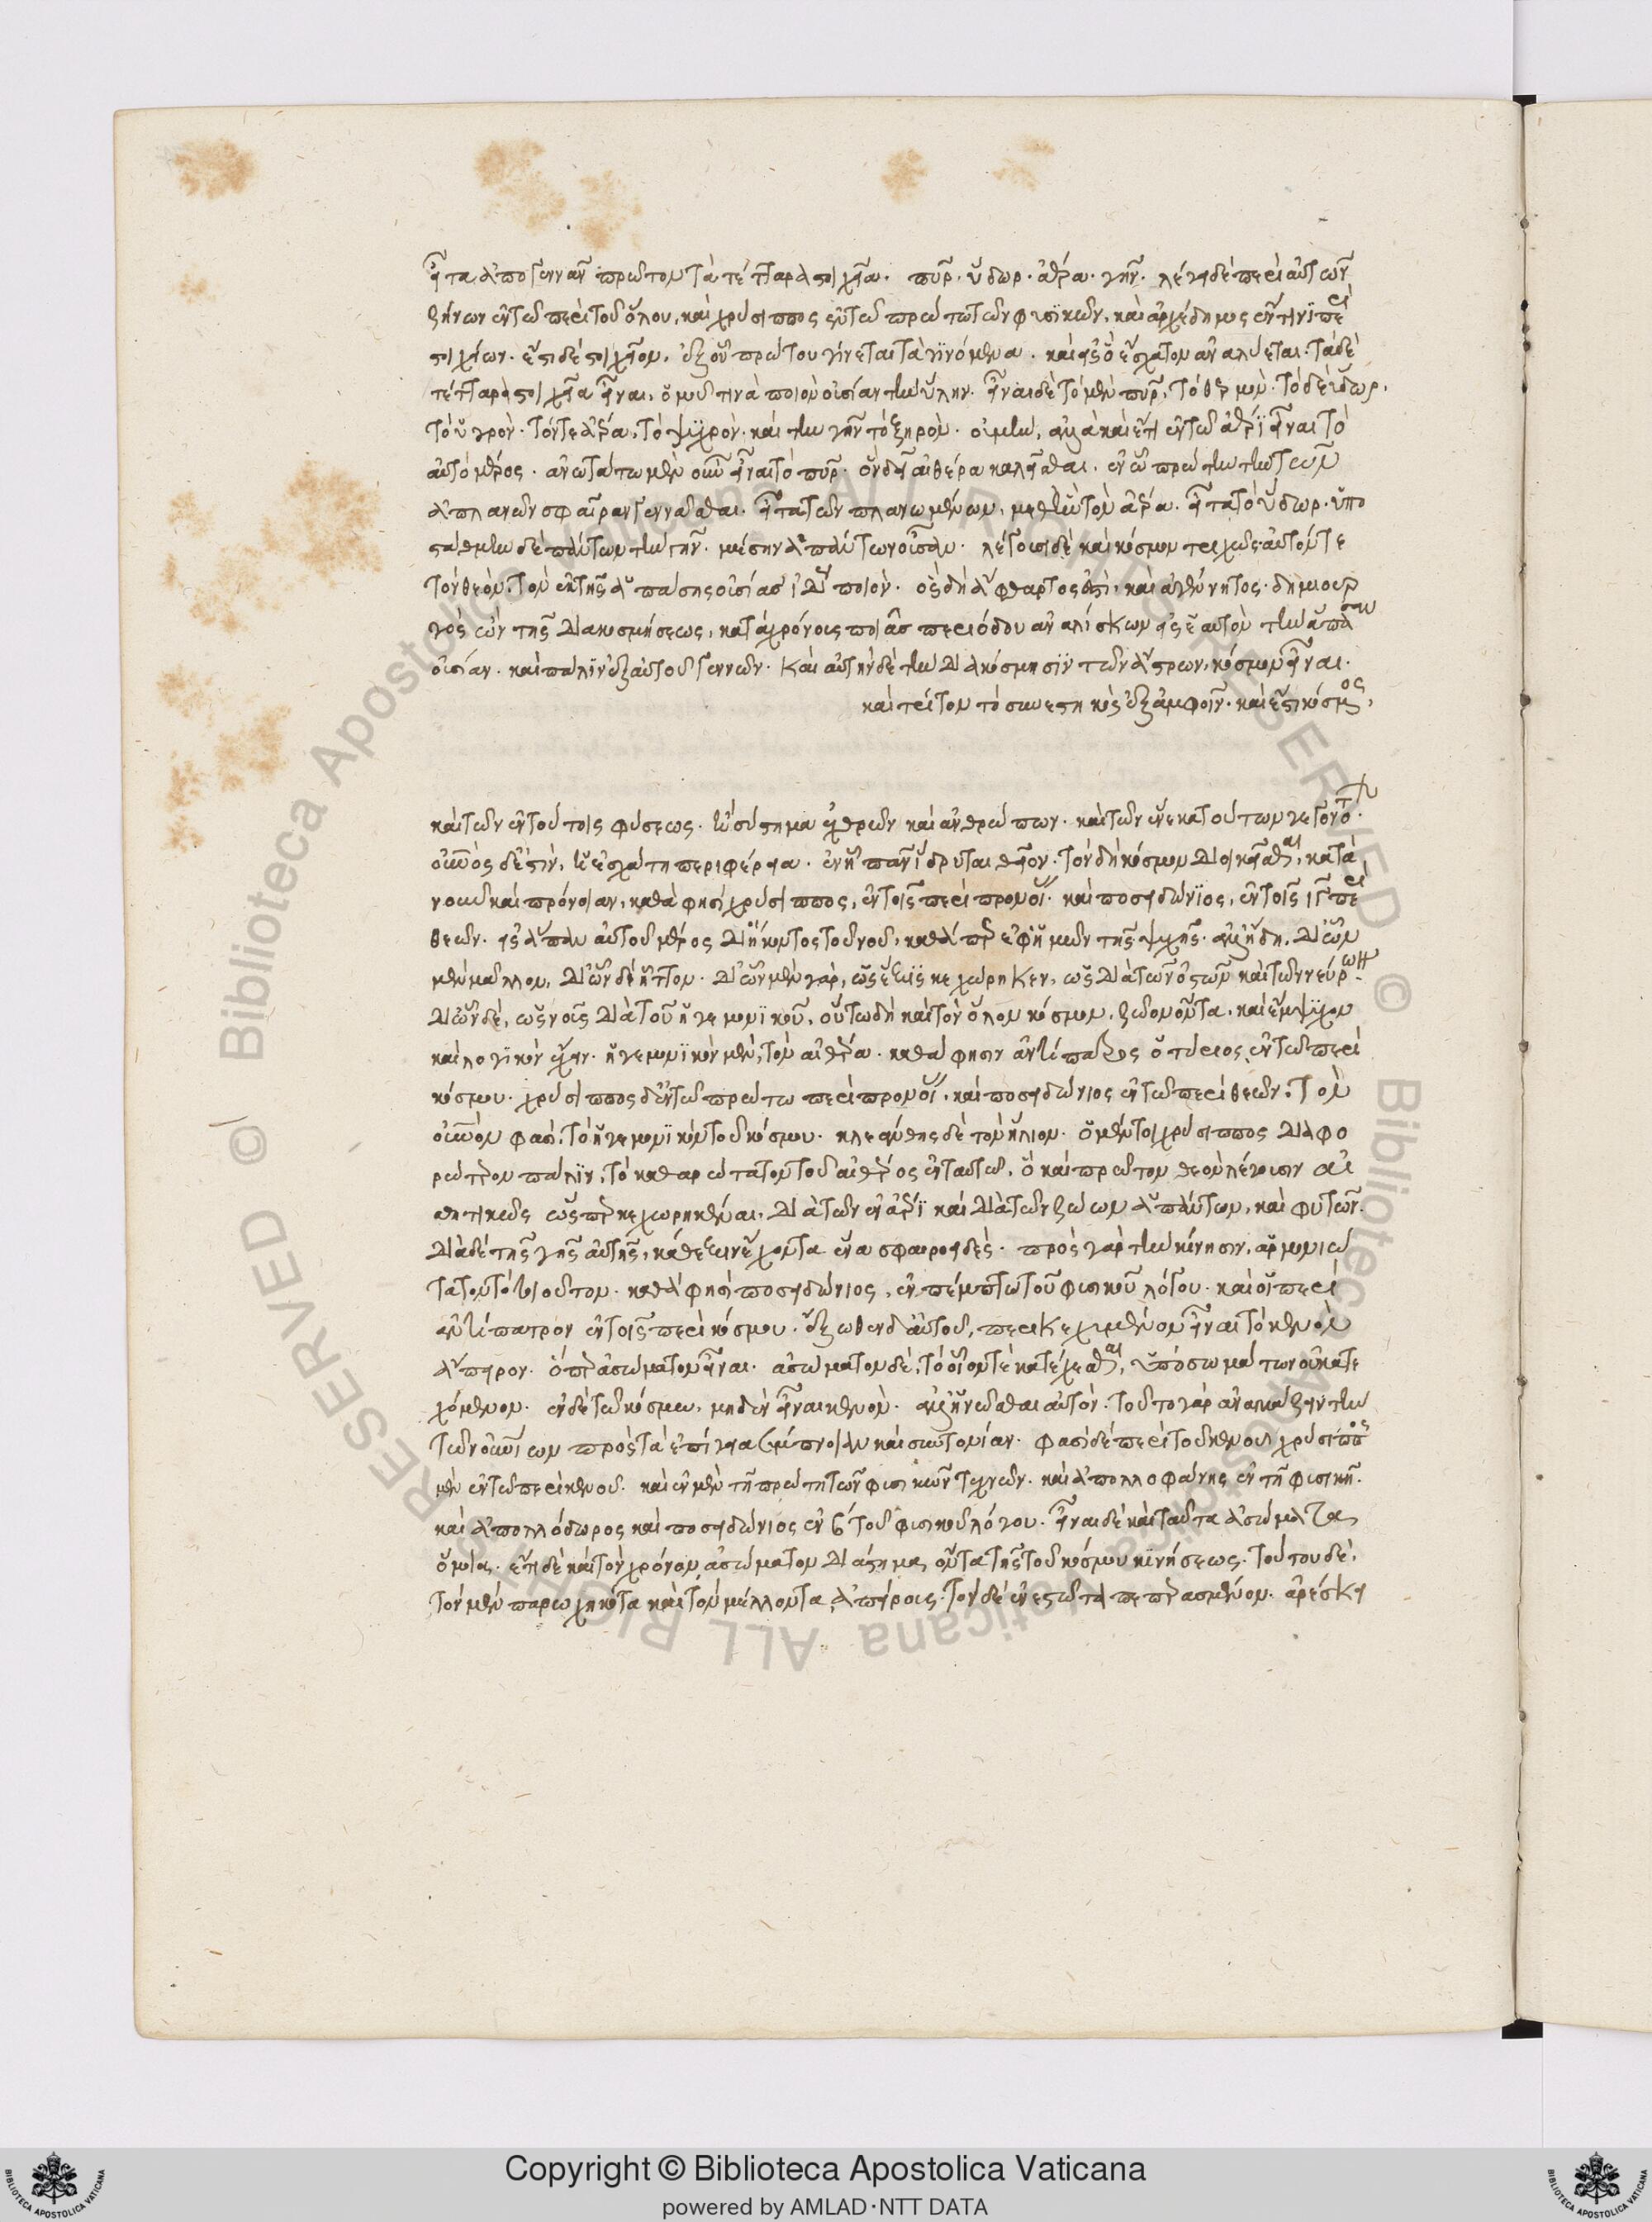 εἶτα ἀπογεννᾶν πρῶτον τὰ τέτταρα στοιχεῖα. πῦρ. ὕδωρ. ἀέρα. γῆν. λέγει δὲ περὶ αὐτῶν
ζήνων ἐν τῶ περὶ τοῦ ὅλου, καὶ χρύσιππος ἐν τῶ πρώτω τῶν φυσϊκῶν, καὶ ἀρχέδημος ἔν τινι περὶ
στοιχείων. ἔστι δὲ στοιχεῖον, ἐξ οὗ πρώτου γίνεται τὰ γϊνόμενα. καὶ εἰς ὃ ἔσχατον ἀναλύεται. τὰ δὲ
τέτταρα στοιχεῖα εἶναι, ὁμοῦ τὴν ἄποιον οὐσίαν τὴν ὕλην. εἶναι δὲ τὸ μὲν πῦρ, τὸ θερμὸν. τὸ δὲ ὕδωρ,
τὸ ὑγρὸν. τόν τε ἀέρα, τὸ ψυχρὸν. καὶ τὴν γῆν τὸ ξηρὸν. οὐ μὴν, ἀλλὰ καὶ ἔτι ἐν τῶ ἀέρϊ εἶναι τὸ
αὐτὸ μέρος. ἀνωτάτω μὲν οὖν εἶναι τὸ πῦρ. ὃν δὴ αἰθέρα καλεῖσθαι. ἐν ὧ πρώτην τὴν τῶν
ἀπλανῶν σφαῖραν γεννᾶσθαι. εἶτα τῶν πλανωμένων, μεθ' ἣν τὸν ἀέρα. εἶτα τὸ ὕδωρ. ὑπο
στάθμην δὲ πάντων τὴν γῆν. μέσην ἁπάντων οὖσαν. λέγουσι δὲ καὶ κόσμον τριχῶς αὐτόν τε
τὸν θεὸν. τὸν ἐκ τῆς ἁπάσης οὐσίας ἰδίως ποιὸν. ὃς δὴ ἄφθαρτος ἐστὶ, καὶ ἀγέννητος. δημιουρ
γὸς ὢν τῆς διακοσμήσεως, κατὰ χρόνους ποιὰς περιόδου ἀναλίσκων εἰς ἑαυτὸν τὴν ἅπασαν
οὐσίαν. καὶ πάλϊν ἐξ αὑτοῦ γεννῶν. καὶ αὐτὴν δὲ τὴν διακόσμησϊν τῶν ἀστέρων, κόσμον εἶναι.
καὶ τρίτον τὸ συνεστηκὸς ἐξ ἀμφοῖν. καὶ ἔστι κόσμος,
καὶ τῶν ἐν τούτοις φύσεως. ἢ σύστημα ἐκ θεῶν καὶ ἀνθρώπων. καὶ τῶν ἕνεκα τούτων γεγονότων.
οὐρανὸς δὲ ἐστὶν, ἡ ἐσχάτη περιφέρεια. ἐν ἧ πᾶν ἵδρυται θεῖον. τὸν δὴ κόσμον διοικεῖσθαι, κατὰ
νοῦν καὶ πρόνοιαν, καθά φησι χρύσιππος, ἐν τοῖς περὶ προνοί. καὶ ποσειδώνϊος, ἐν τοῖς ιγ περὶ
θεῶν. εἰς ἅπαν αὐτοῦ μέρος διήκοντος τοῦ νοῦ, καθάπερ ἐφ' ἡμῶν τῆς ψυχῆς. ἀλλ' ἤδη, δι' ὧν
μὲν μᾶλλον, δι' ὧν δὲ ἧττον. δι' ὧν μὲν γὰρ, ὡς ἕξϊς κεχώρηκεν, ὡς διὰ τῶν ὀστῶν καὶ τῶν νεύρων.
δι' ὧν δὲ, ὡς νοῦς διὰ τοῦ ἡγεμονϊκοῦ, οὕτω δὴ καὶ τὸν ὅλον κόσμον, ζῶον ὄντα, καὶ ἔμψϋχον
καὶ λογϊκὸν ἔχειν. ἡγεμονϊκὸν μὲν, τὸν αἰθέρα. καθά φησιν ἀντίπατρος ὁ τύριος ἐν τῶ περὶ
κόσμου. χρύσιππος δ' ἐν τῶ πρώτω περὶ προνοί, καὶ ποσειδώνιος ἐν τῶ περὶ θεῶν, τὸν
οὐρανόν φασι, τὸ ἡγεμονϊκὸν τοῦ κόσμου. κλεάνθης δὲ τὸν ἥλιον. ὁ μέντοι χρύσιππος διαφο
ρώτερον πάλϊν, τὸ καθαρώτατον τοῦ αἰθέρος ἐν ταυτῶ, ὃ καὶ πρῶτον θεὸν λέγουσιν αἰ
σθητικῶς ὥσπερ κεχωρηκέναι, διὰ τῶν ἐν ἀέρϊ καὶ διὰ τῶν ζώων ἁπάντων, καὶ φυτῶν.
διὰ δὲ τῆς γῆς αὐτῆς, καθ' ἕξιν ἔχοντα ἕνα σφαιροειδὲς. πρὸς γὰρ τὴν κίνησιν, ἁρμονιώ
τατον τὸ τοιοῦτον. καθά φησι ποσειδώνιος, ἐν πέμπτω τοῦ φυσικοῦ λόγου. καὶ οἱ περὶ
ἀντίπατρον ἐν τοῖς περὶ κόσμου. ἔξωθεν δ' αὐτοῦ, περικεχυμένον εἶναι τὸ κενὸν
ἄπειρον. ὅπερ ἀσώματον εἶναι. ἀσώματον δὲ, τὸ οἷόν τε κατέχεσθαι, ὑπὸ σωμάτων οὐ κατε
χόμενον. ἐν δὲ τῶ κόσμω, μηδὲν εἶναι κενὸν. ἀλλ' ἡνῶσθαι αὐτόν. τοῦτο γὰρ ἀναγκάζειν τὴν
τῶν οὐρανίων πρὸς τὰ ἐπίγεια σύμπνοιαν καὶ συντονίαν. φασὶ δὲ περὶ τοῦ κενοῦ χρύσιππος
μὲν ἐν τῶ περὶ κενοῦ. καὶ ἐν μὲν τῆ πρώτη τῶν φυσικῶν τεχνῶν. καὶ ἀπολλοφάνης ἐν τῆ φυσικῆ.
καὶ ἀπολλόδωρος καὶ ποσειδώνιος ἐν β τοῦ φυσικοῦ λόγου. εἶναι δὲ καὶ ταῦτα ἀσώματα
ὅμοια. ἔτι δὲ καὶ τὸν χρόνον ἀσώματον διάστημα ὄντα τῆς τοῦ κόσμου κϊνήσεως. τούτου δὲ,
τὸν μὲν παρωχηκότα καὶ τὸν μέλλοντα, ἀπείρους. τὸν δὲ ἐνεστῶτα πεπερασμένον. ἀρέσκει